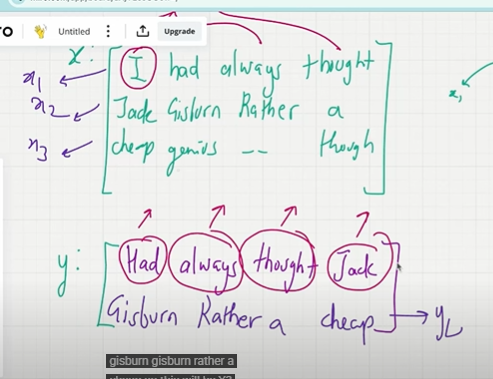 Untitled
Upgrade
x: I had always thought
x1
x2 Jack Gisburn Rather a
x3 cheap genius -- though
x1
y: Had always thought Jack
Gisburn Rather a cheap → y2
gisburn gisburn rather a